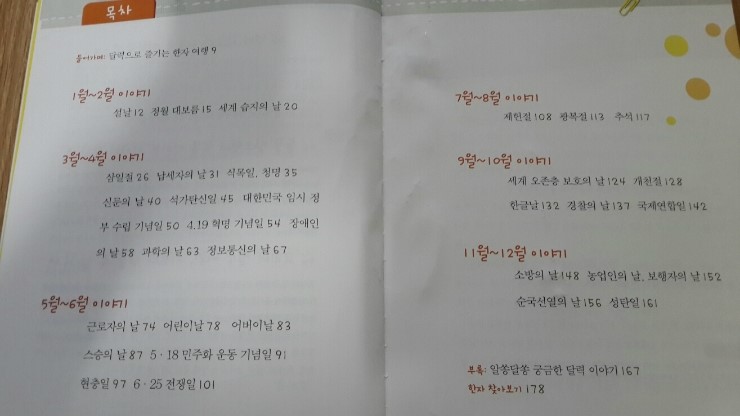 목차
들어가며: 달력으로 즐기는 한자 여행 9
1월~2월 이야기
설날 12 정월 대보름 15 세계 습지의 날 20
3월~4월 이야기
삼일절 26 납세자의 날 31 식목일, 청명 35
신문의 날 40 석가탄신일 45 대한민국 임시 정
부 수립 기념일 50 4.19 혁명 기념일 54 장애인
의 날 58 과학의 날 63 정보통신의 날 67
5월~6월 이야기
근로자의 날 74 어린이날 78 어버이날 83
스승의 날 87 5·18 민주화 운동 기념일 91
현충일 97 6·25 전쟁일 101
7월~8월 이야기
제헌절 108 광복절 113 추석 117
9월~10월 이야기
세계 오존층 보호의 날 124 개천절 128
한글날 132 경찰의 날 137 국제연합일 142
11월~12월 이야기
소방의 날 148 농업인의 날, 보행자의 날 152
순국선열의 날 156 성탄일 161
부록: 알쏭달쏭 궁금한 달력 이야기 167
한자 찾아보기 178